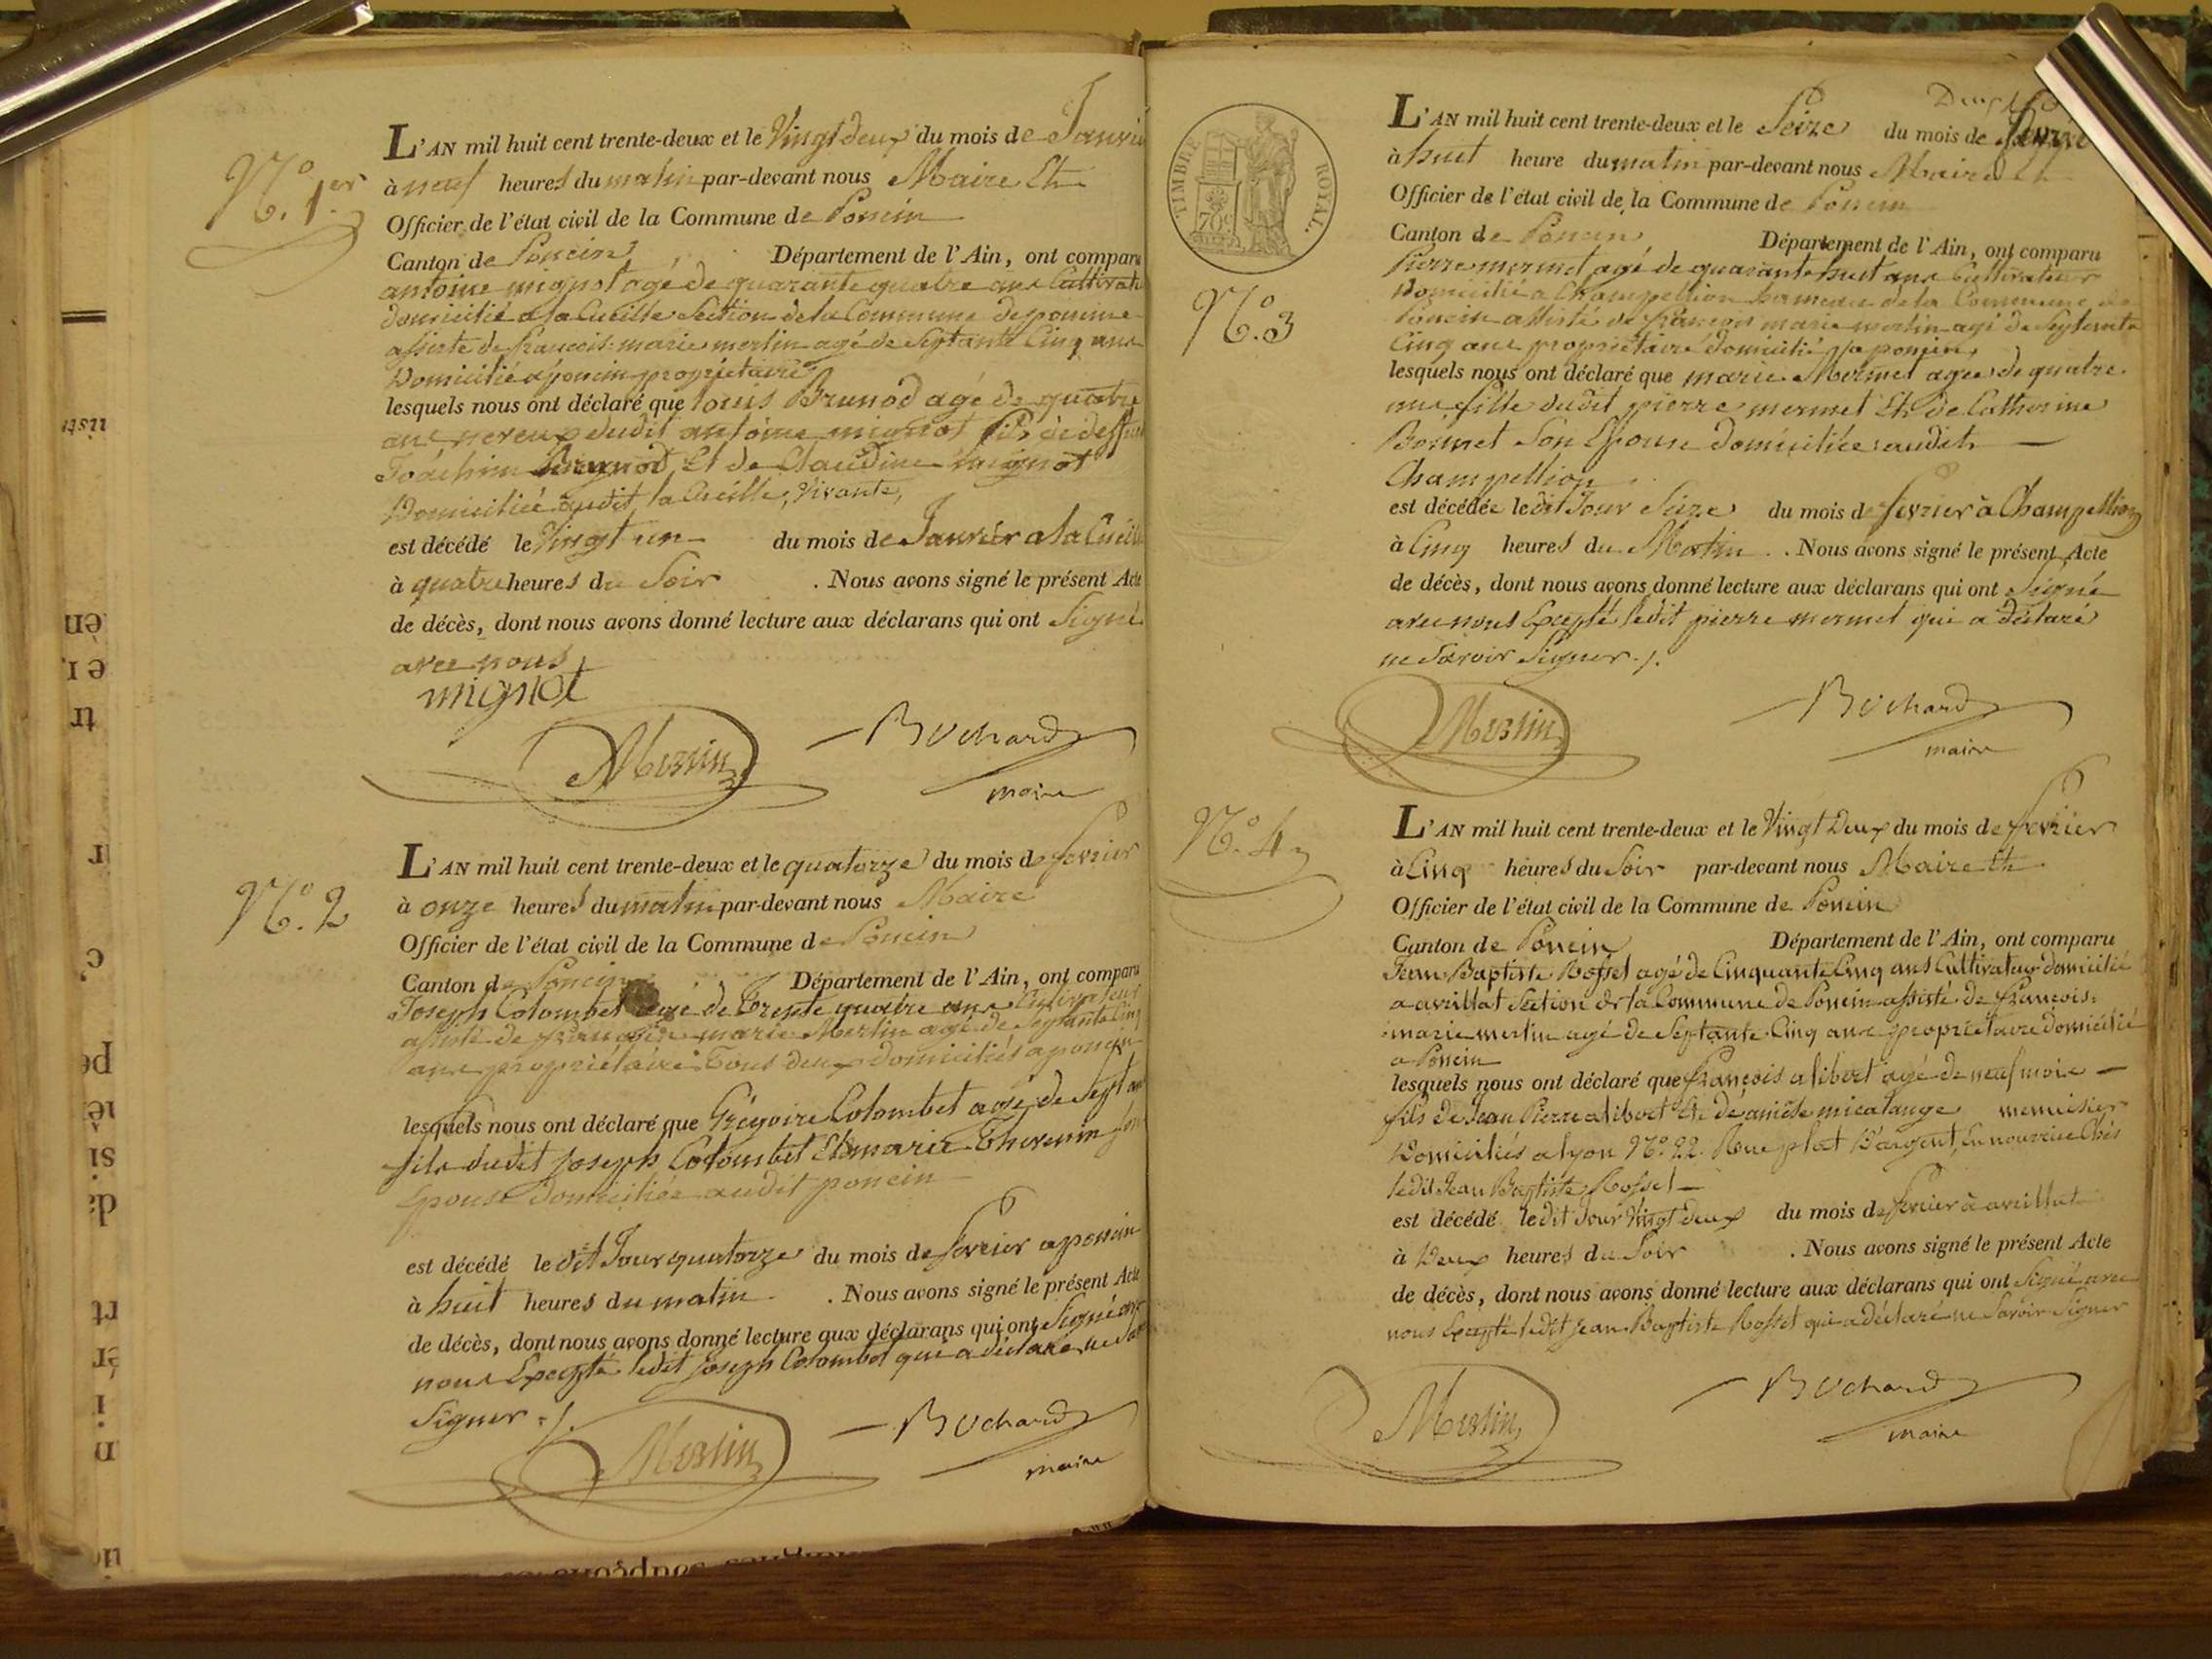 N.º 1.er
L'AN mil huit cent trente-deux et le Vingt deux du mois de Janvie
à neuf heures du matin par-devant nous Maire &
Officier de l'état civil de la Commune de Poncin
Canton de Poncin Département de l'Ain, ont comparu
antoine mignot agé de quarante quatre ans Cultivate
domicilié a la Cueille Section de la Commune de poncin
assisté de francois marie merlin agé de Septante Cinq ans
Domicilié a poncin propriétaire
lesquels nous ont déclaré que louis Brunod agé de quatre
ans neveux dudit antoine mignot fils de deffunt
Joachim Brunod Et de Claudine mignot
Domiciliée audit la Cueille, Vivante,
est décédé le Vingt un du mois de Janvier a la Cueille
à quatre heures du Soir . Nous avons signé le présent Acte
de décès, dont nous avons donné lecture aux déclarans qui ont Signé
avec nous
mignot
Merlin Bochard
maire
N.º 2
L'AN mil huit cent trente-deux et le quatorze du mois de fevrier
à onze heures du matin par-devant nous Maire
Officier de l'état civil de la Commune de Poncin
Canton de Poncin Département de l'Ain, ont comparu
Joseph Colombet agé de Trente quatre ans Cultivateur
assisté de françois marie Merlin agé de Septante Cinq
ans propriétaire Tous deux domiciliés a poncin
lesquels nous ont déclaré que Grégoire Colombet agé de Sept ans
fils dudit Joseph Colombet Et marie Thevenin son
Epouse domiciliée audit poncin
est décédé le dit Jour quatorze du mois de fevrier a poncin
à huit heures du matin . Nous avons signé le présent Acte
de décès, dont nous avons donné lecture aux déclarans qui ont Signé avec
nous Excepté ledit Joseph Colombet qui a déclaré ne Sav
Signer ./.
Merlin Bochard
maire
TIMBRE ROYAL.
70c
N.º 3
L'AN mil huit cent trente-deux et le Seize du mois de fevrie
à huit heure du matin par-devant nous Maire &
Officier de l'état civil de la Commune de Poncin
Canton de Poncin Département de l'Ain, ont comparu
Pierre mermet agé de quarante huit ans Cultivateur
Domicilié a Champellion hameau de la Commune de
Poncin assisté de françois marie merlin agé de Septante
Cinq ans propriétaire domicilié a poncin,
lesquels nous ont déclaré que marie Mermet agée de quatre
ans fille dudit pierre mermet Et de Catherine
Bonnet Son Epouse domiciliée audit
Champellion
est décédée le dit Jour Seize du mois de fevrier à Champellion
à Cinq heures du Matin . Nous avons signé le présent Acte
de décès, dont nous avons donné lecture aux déclarans qui ont Signé
avec nous Excepté ledit pierre mermet qui a déclaré
ne Savoir Signer ./.
Merlin Bochard
maire
N.º 4
L'AN mil huit cent trente-deux et le Vingt Deux du mois de fevrier
à Cinq heures du Soir par-devant nous Maire &
Officier de l'état civil de la Commune de Poncin
Canton de Poncin Département de l'Ain, ont comparu
Jean Baptiste Rosset agé de Cinquante Cinq ans Cultivateur domicilié
a avrillat Section de la Commune de Poncin assisté de francois
marie merlin agé de Septante Cinq ans propriétaire domicilié
a Poncin
lesquels nous ont déclaré que François alibert agé de neuf mois
fils de Jean Pierre alibert Et de micalange menuisier
Domiciliés a lyon N.º 22. Rue plat D'argent, En nourrice Chés
ledit Jean Baptiste Rosset
est décédé le dit Jour Vingt deux du mois de fevrier à avrillat
à Deux heures du Soir . Nous avons signé le présent Acte
de décès, dont nous avons donné lecture aux déclarans qui ont Signé avec
nous Excepté ledit Jean Baptiste Rosset qui a déclaré ne Savoir Signer
Merlin Bochard
maire